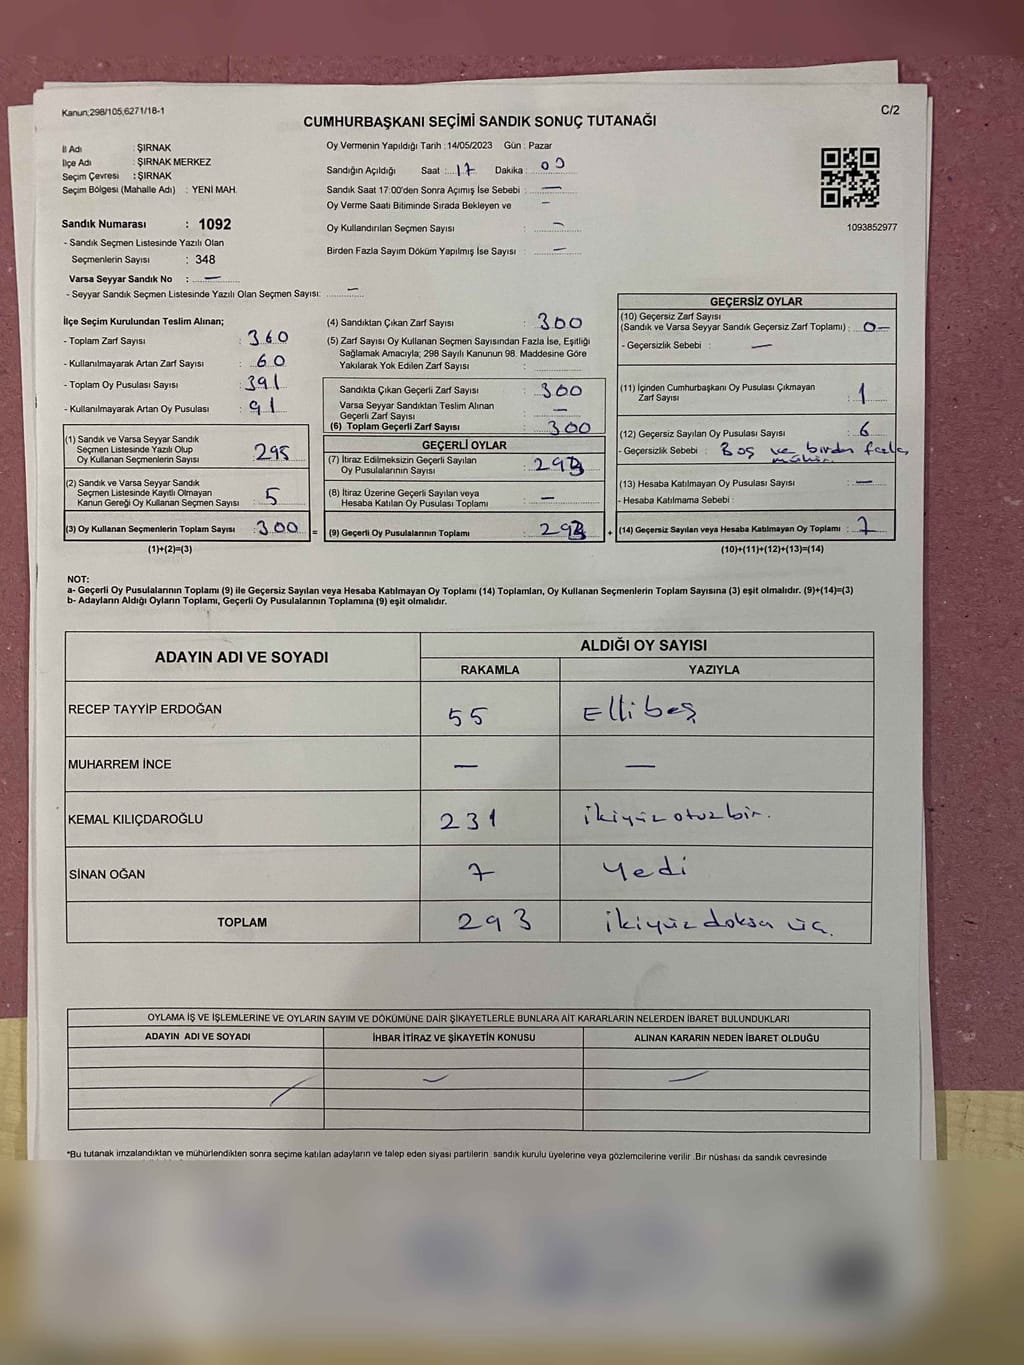 Kanun;298/105,6271/18-1
C/2
CUMHURBAŞKANI SEÇİMİ SANDIK SONUÇ TUTANAĞI
İl Adı : ŞIRNAK
İlçe Adı : ŞIRNAK MERKEZ
Seçim Çevresi : ŞIRNAK
Seçim Bölgesi (Mahalle Adı) : YENİ MAH.
Sandık Numarası : 1092
- Sandık Seçmen Listesinde Yazılı Olan
Seçmenlerin Sayısı : 348
Varsa Seyyar Sandık No : —
- Seyyar Sandık Seçmen Listesinde Yazılı Olan Seçmen Sayısı: —
Oy Vermenin Yapıldığı Tarih : 14/05/2023 Gün : Pazar
Sandığın Açıldığı Saat : 17 Dakika : 00
Sandık Saat 17:00'den Sonra Açımış İse Sebebi : —
Oy Verme Saati Bitiminde Sırada Bekleyen ve —
Oy Kullandırılan Seçmen Sayısı : —
Birden Fazla Sayım Döküm Yapılmış İse Sayısı : —
1093852977
İlçe Seçim Kurulundan Teslim Alınan;
- Toplam Zarf Sayısı : 360
- Kullanılmayarak Artan Zarf Sayısı : 60
- Toplam Oy Pusulası Sayısı : 391
- Kullanılmayarak Artan Oy Pusulası : 91
(1) Sandık ve Varsa Seyyar Sandık
Seçmen Listesinde Yazılı Olup
Oy Kullanan Seçmenlerin Sayısı : 295
(2) Sandık ve Varsa Seyyar Sandık
Seçmen Listesinde Kayıtlı Olmayan
Kanun Gereği Oy Kullanan Seçmen Sayısı : 5
(3) Oy Kullanan Seçmenlerin Toplam Sayısı : 300 =
(1)+(2)=(3)
(4) Sandıktan Çıkan Zarf Sayısı : 300
(5) Zarf Sayısı Oy Kullanan Seçmen Sayısından Fazla İse, Eşitliği
Sağlamak Amacıyla; 298 Sayılı Kanunun 98. Maddesine Göre
Yakılarak Yok Edilen Zarf Sayısı :
Sandıkta Çıkan Geçerli Zarf Sayısı : 300
Varsa Seyyar Sandıktan Teslim Alınan
Geçerli Zarf Sayısı : —
(6) Toplam Geçerli Zarf Sayısı : 300
GEÇERLİ OYLAR
(7) İtiraz Edilmeksizin Geçerli Sayılan
Oy Pusulalarının Sayısı : 293
(8) İtiraz Üzerine Geçerli Sayılan veya
Hesaba Katılan Oy Pusulası Toplamı : —
(9) Geçerli Oy Pusulalarının Toplamı : 293 +
GEÇERSİZ OYLAR
(10) Geçersiz Zarf Sayısı
(Sandık ve Varsa Seyyar Sandık Geçersiz Zarf Toplamı) : 0-
- Geçersizlik Sebebi : —
(11) İçinden Cumhurbaşkanı Oy Pusulası Çıkmayan
Zarf Sayısı : 1
(12) Geçersiz Sayılan Oy Pusulası Sayısı : 6
- Geçersizlik Sebebi : Boş ve birden fazla
mühür.
(13) Hesaba Katılmayan Oy Pusulası Sayısı : —
- Hesaba Katılmama Sebebi :
(14) Geçersiz Sayılan veya Hesaba Katılmayan Oy Toplamı : 7
(10)+(11)+(12)+(13)=(14)
NOT:
a- Geçerli Oy Pusulalarının Toplamı (9) ile Geçersiz Sayılan veya Hesaba Katılmayan Oy Toplamı (14) Toplamları, Oy Kullanan Seçmenlerin Toplam Sayısına (3) eşit olmalıdır. (9)+(14)=(3)
b- Adayların Aldığı Oyların Toplamı, Geçerli Oy Pusulalarının Toplamına (9) eşit olmalıdır.
ADAYIN ADI VE SOYADI
ALDIĞI OY SAYISI
RAKAMLA YAZIYLA
RECEP TAYYİP ERDOĞAN 55 Ellibeş
MUHARREM İNCE — —
KEMAL KILIÇDAROĞLU 231 ikiyüz otuzbir.
SİNAN OĞAN 7 Yedi
TOPLAM 293 ikiyüz doksa üç.
OYLAMA İŞ VE İŞLEMLERİNE VE OYLARIN SAYIM VE DÖKÜMÜNE DAİR ŞİKAYETLERLE BUNLARA AİT KARARLARIN NELERDEN İBARET BULUNDUKLARI
ADAYIN ADI VE SOYADI İHBAR İTİRAZ VE ŞİKAYETİN KONUSU ALINAN KARARIN NEDEN İBARET OLDUĞU
*Bu tutanak imzalandıktan ve mühürlendikten sonra seçime katılan adayların ve talep eden siyasi partilerin sandık kurulu üyelerine veya gözlemcilerine verilir .Bir nüshası da sandık çevresinde